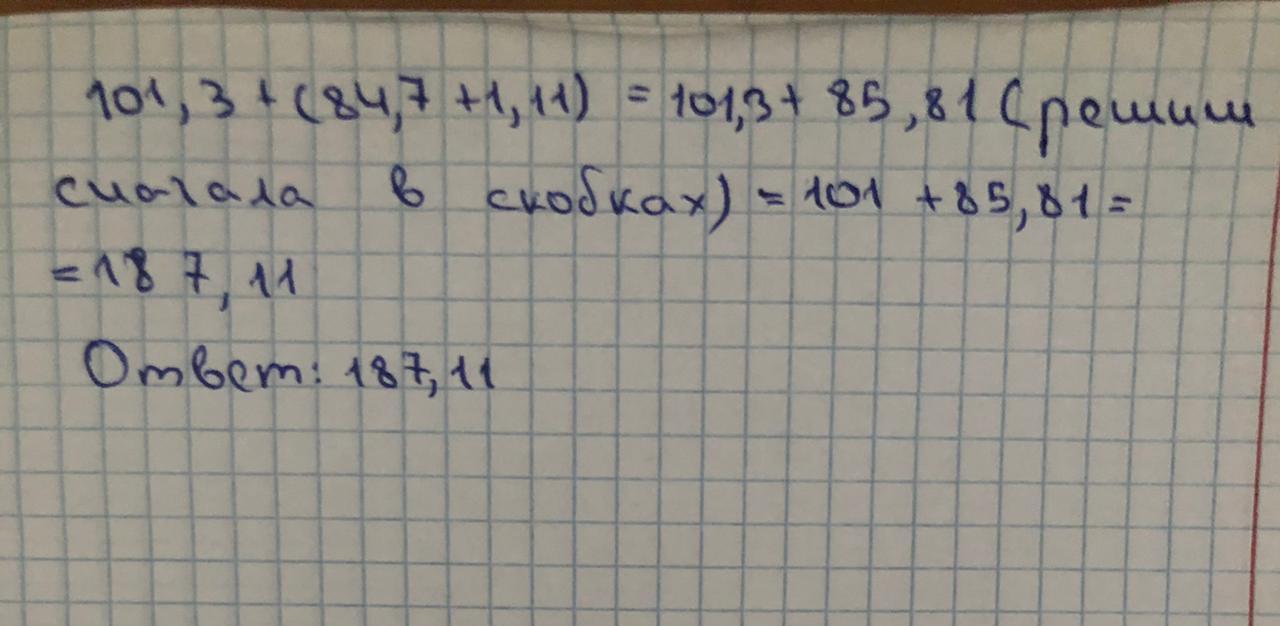 101,3 + (84,7 + 1,11) = 101,3 + 85,81 (решим
сначала в скобках) = 101 + 85,81 =
= 187,11
Ответ: 187,11